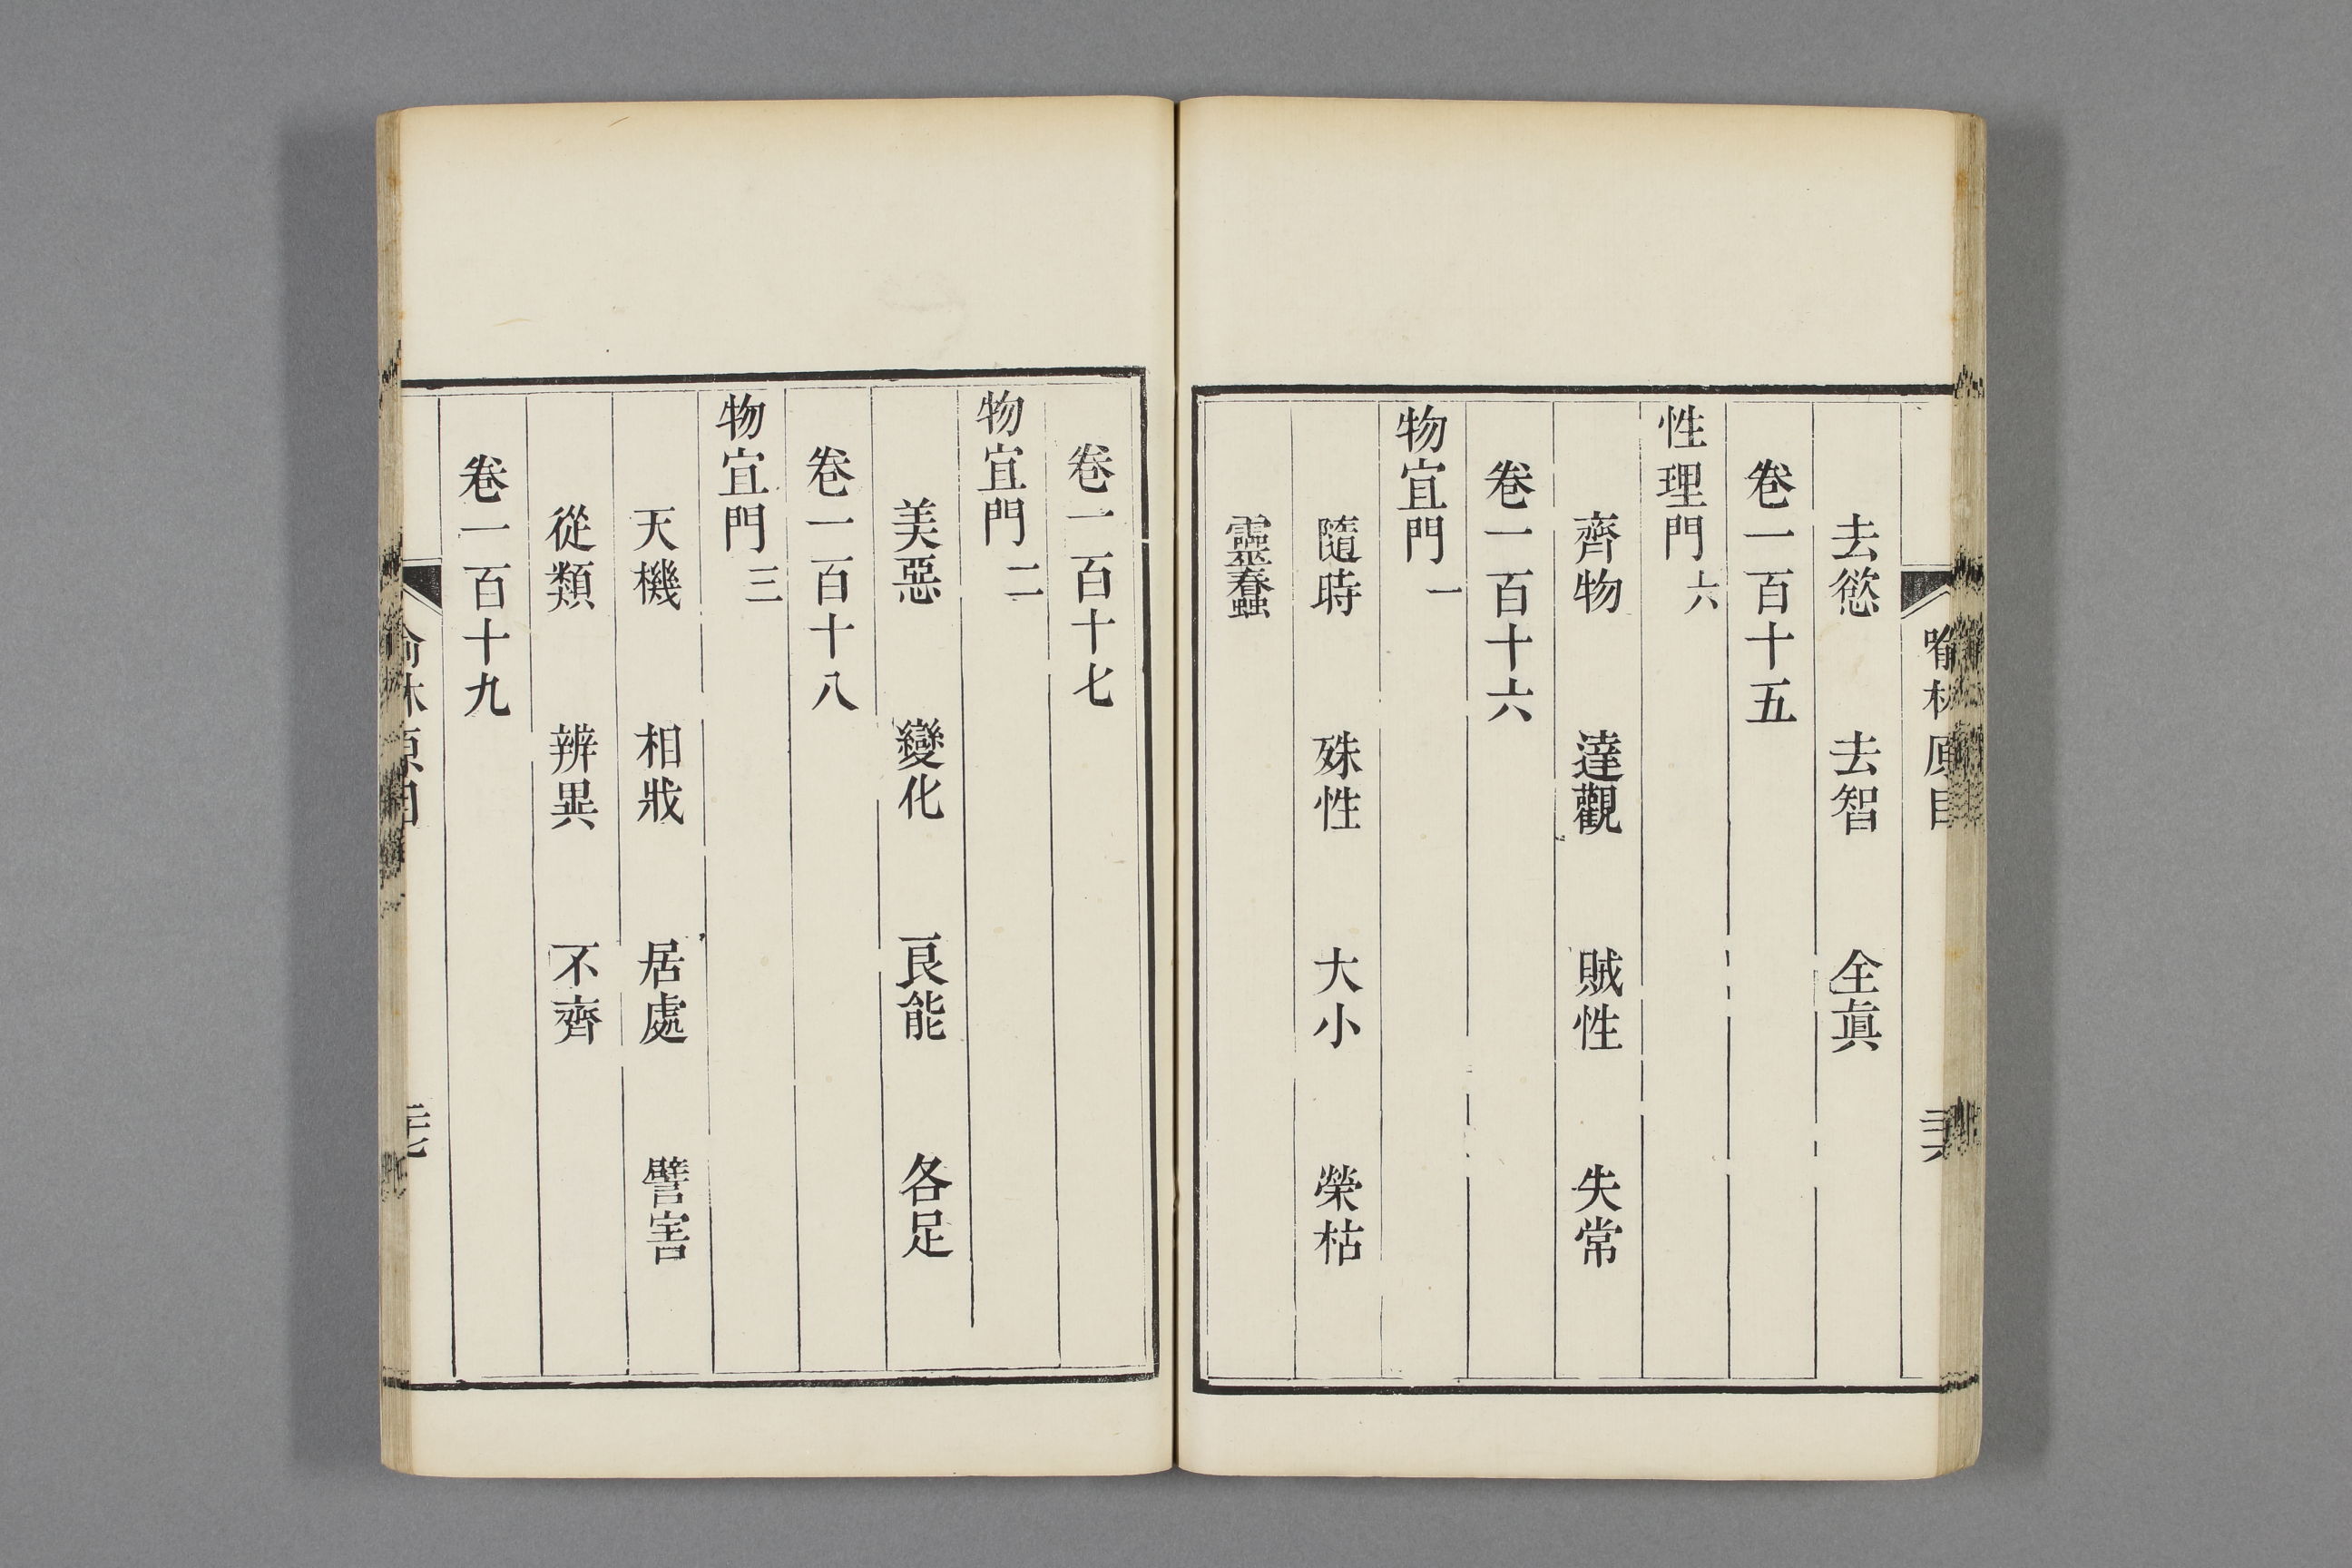 喻林原目
去慾　去智　全眞
卷一百十五
性理門六
齊物　達觀　賊性　失常
卷一百十六
物宜門一
隨時　殊性　大小　榮枯
靈蠢
卷一百十七
物宜門二
美惡　變化　良能　各足
卷一百十八
物宜門三
天機　相戕　居處　譬害
從類　辨異　不齊
卷一百十九
喻林原目